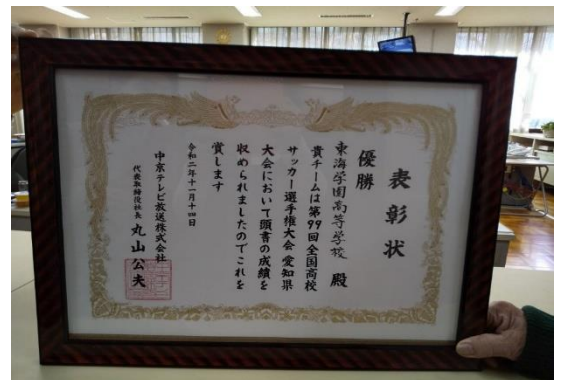 表彰状
優勝
東海学園高等学校 殿
貴チームは第99回全国高校
サッカー選手権大会 愛知県
大会において頭書の成績を
収められましたのでこれを
賞します
令和二年十一月十四日
中京テレビ放送株式会社
代表取締役社長 丸山公夫